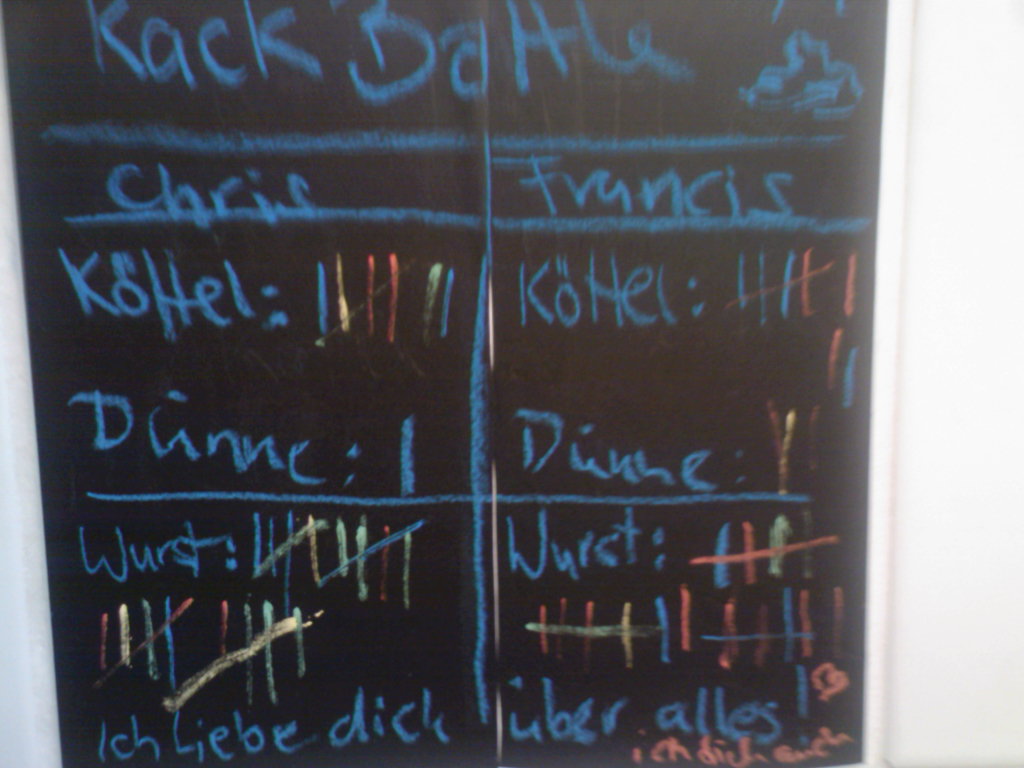 Kack Battle
Chris Francis
Köttel: Köttel:
Dünne: Dünne:
Wurst: Wurst:
Ich Liebe dich über alles!
ich dich auch